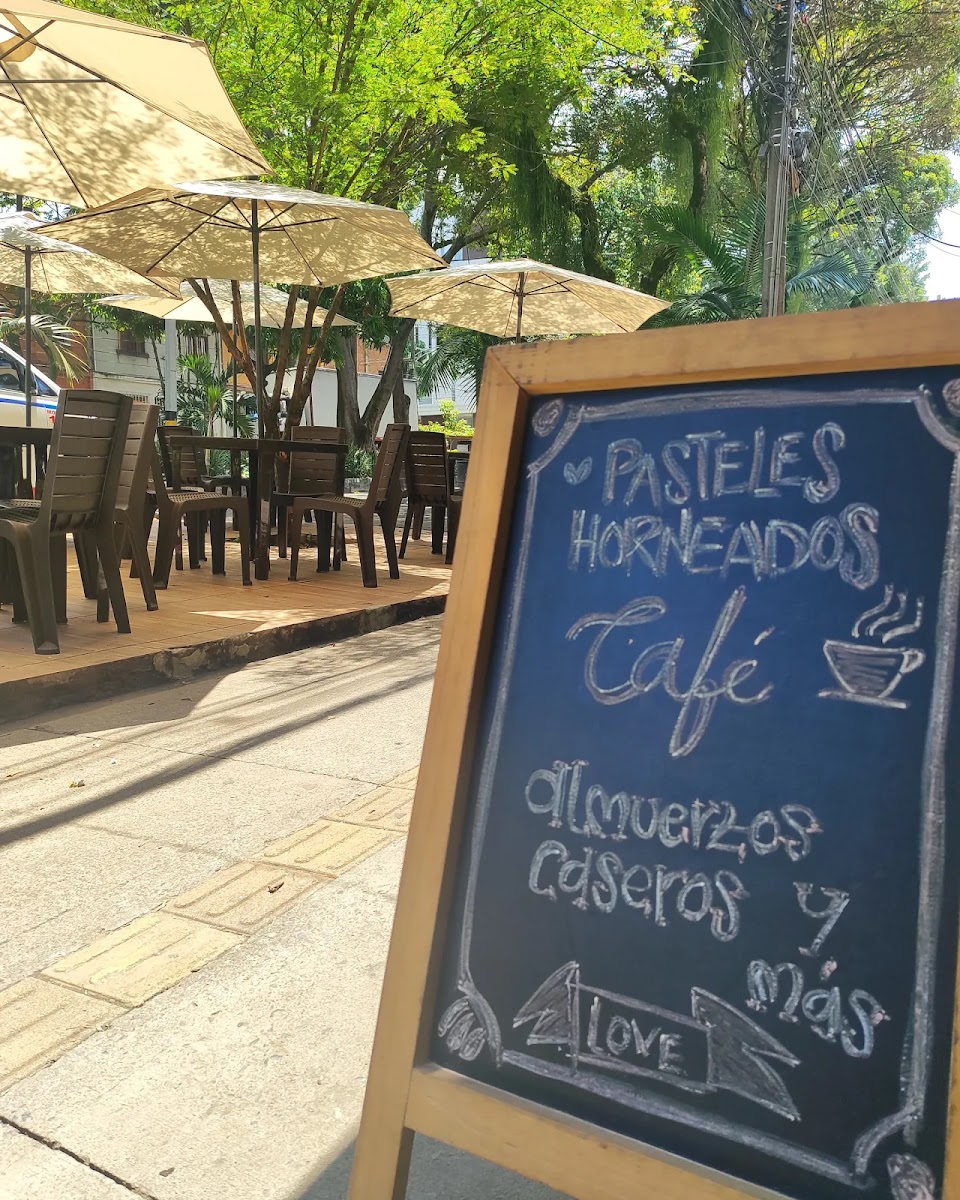 PASTELES
HORNEADOS
Café
almuerzos
caseros y
más
LOVE